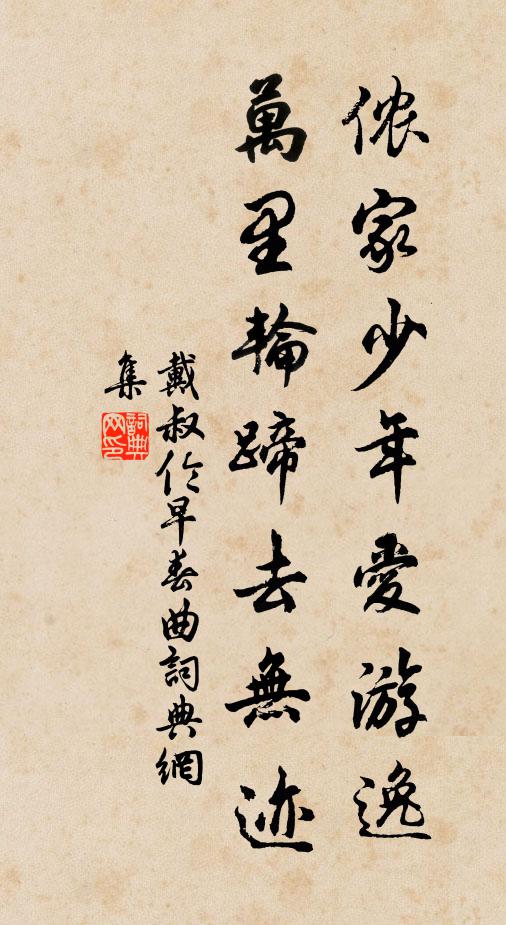 侬家少年愛游逸
萬里輪蹄去無迹
戴叔伦早春曲詞典網
集
詞典网印